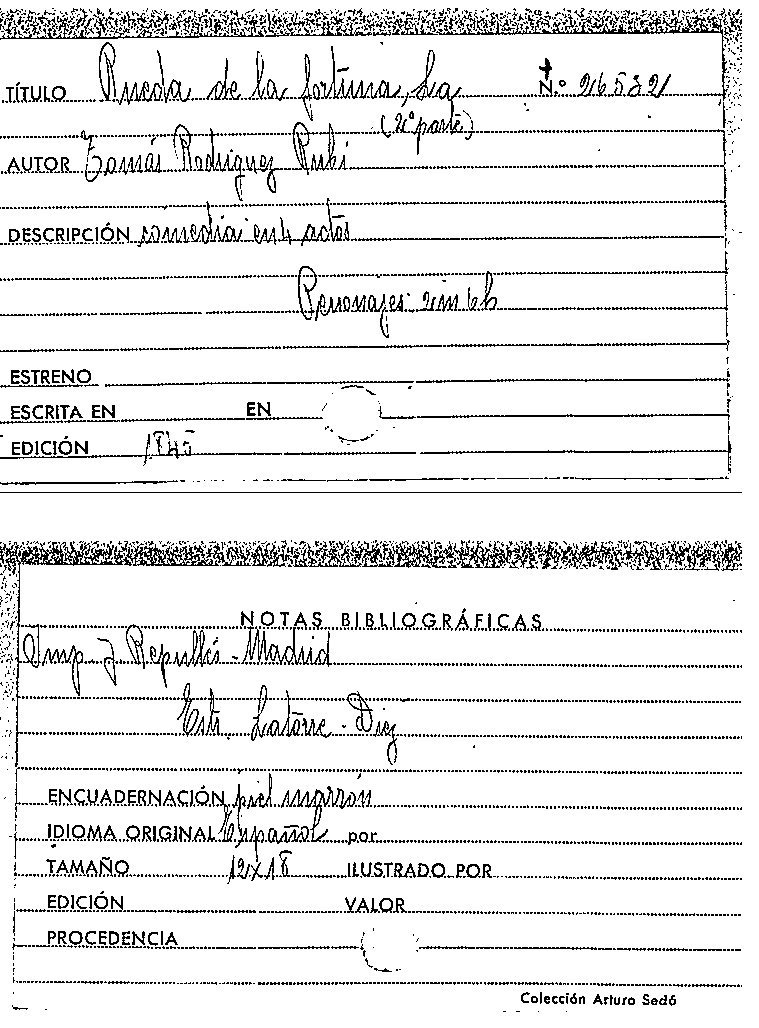 TÍTULO Rueda de la fortuna, La N.º 26532
(2ª parte)
AUTOR Tomás Rodriguez Rubi
DESCRIPCIÓN comedia en 4 actos
Personajes 2m 6h
ESTRENO
ESCRITA EN EN
EDICIÓN 1845
NOTAS BIBLIOGRÁFICAS
Imp. J Repullés - Madrid
Estr. Latorre - Diez
ENCUADERNACIÓN piel marrón
IDIOMA ORIGINAL Español por
TAMAÑO 12x18 ILUSTRADO POR
EDICIÓN VALOR
PROCEDENCIA
Colección Arturo Sedó